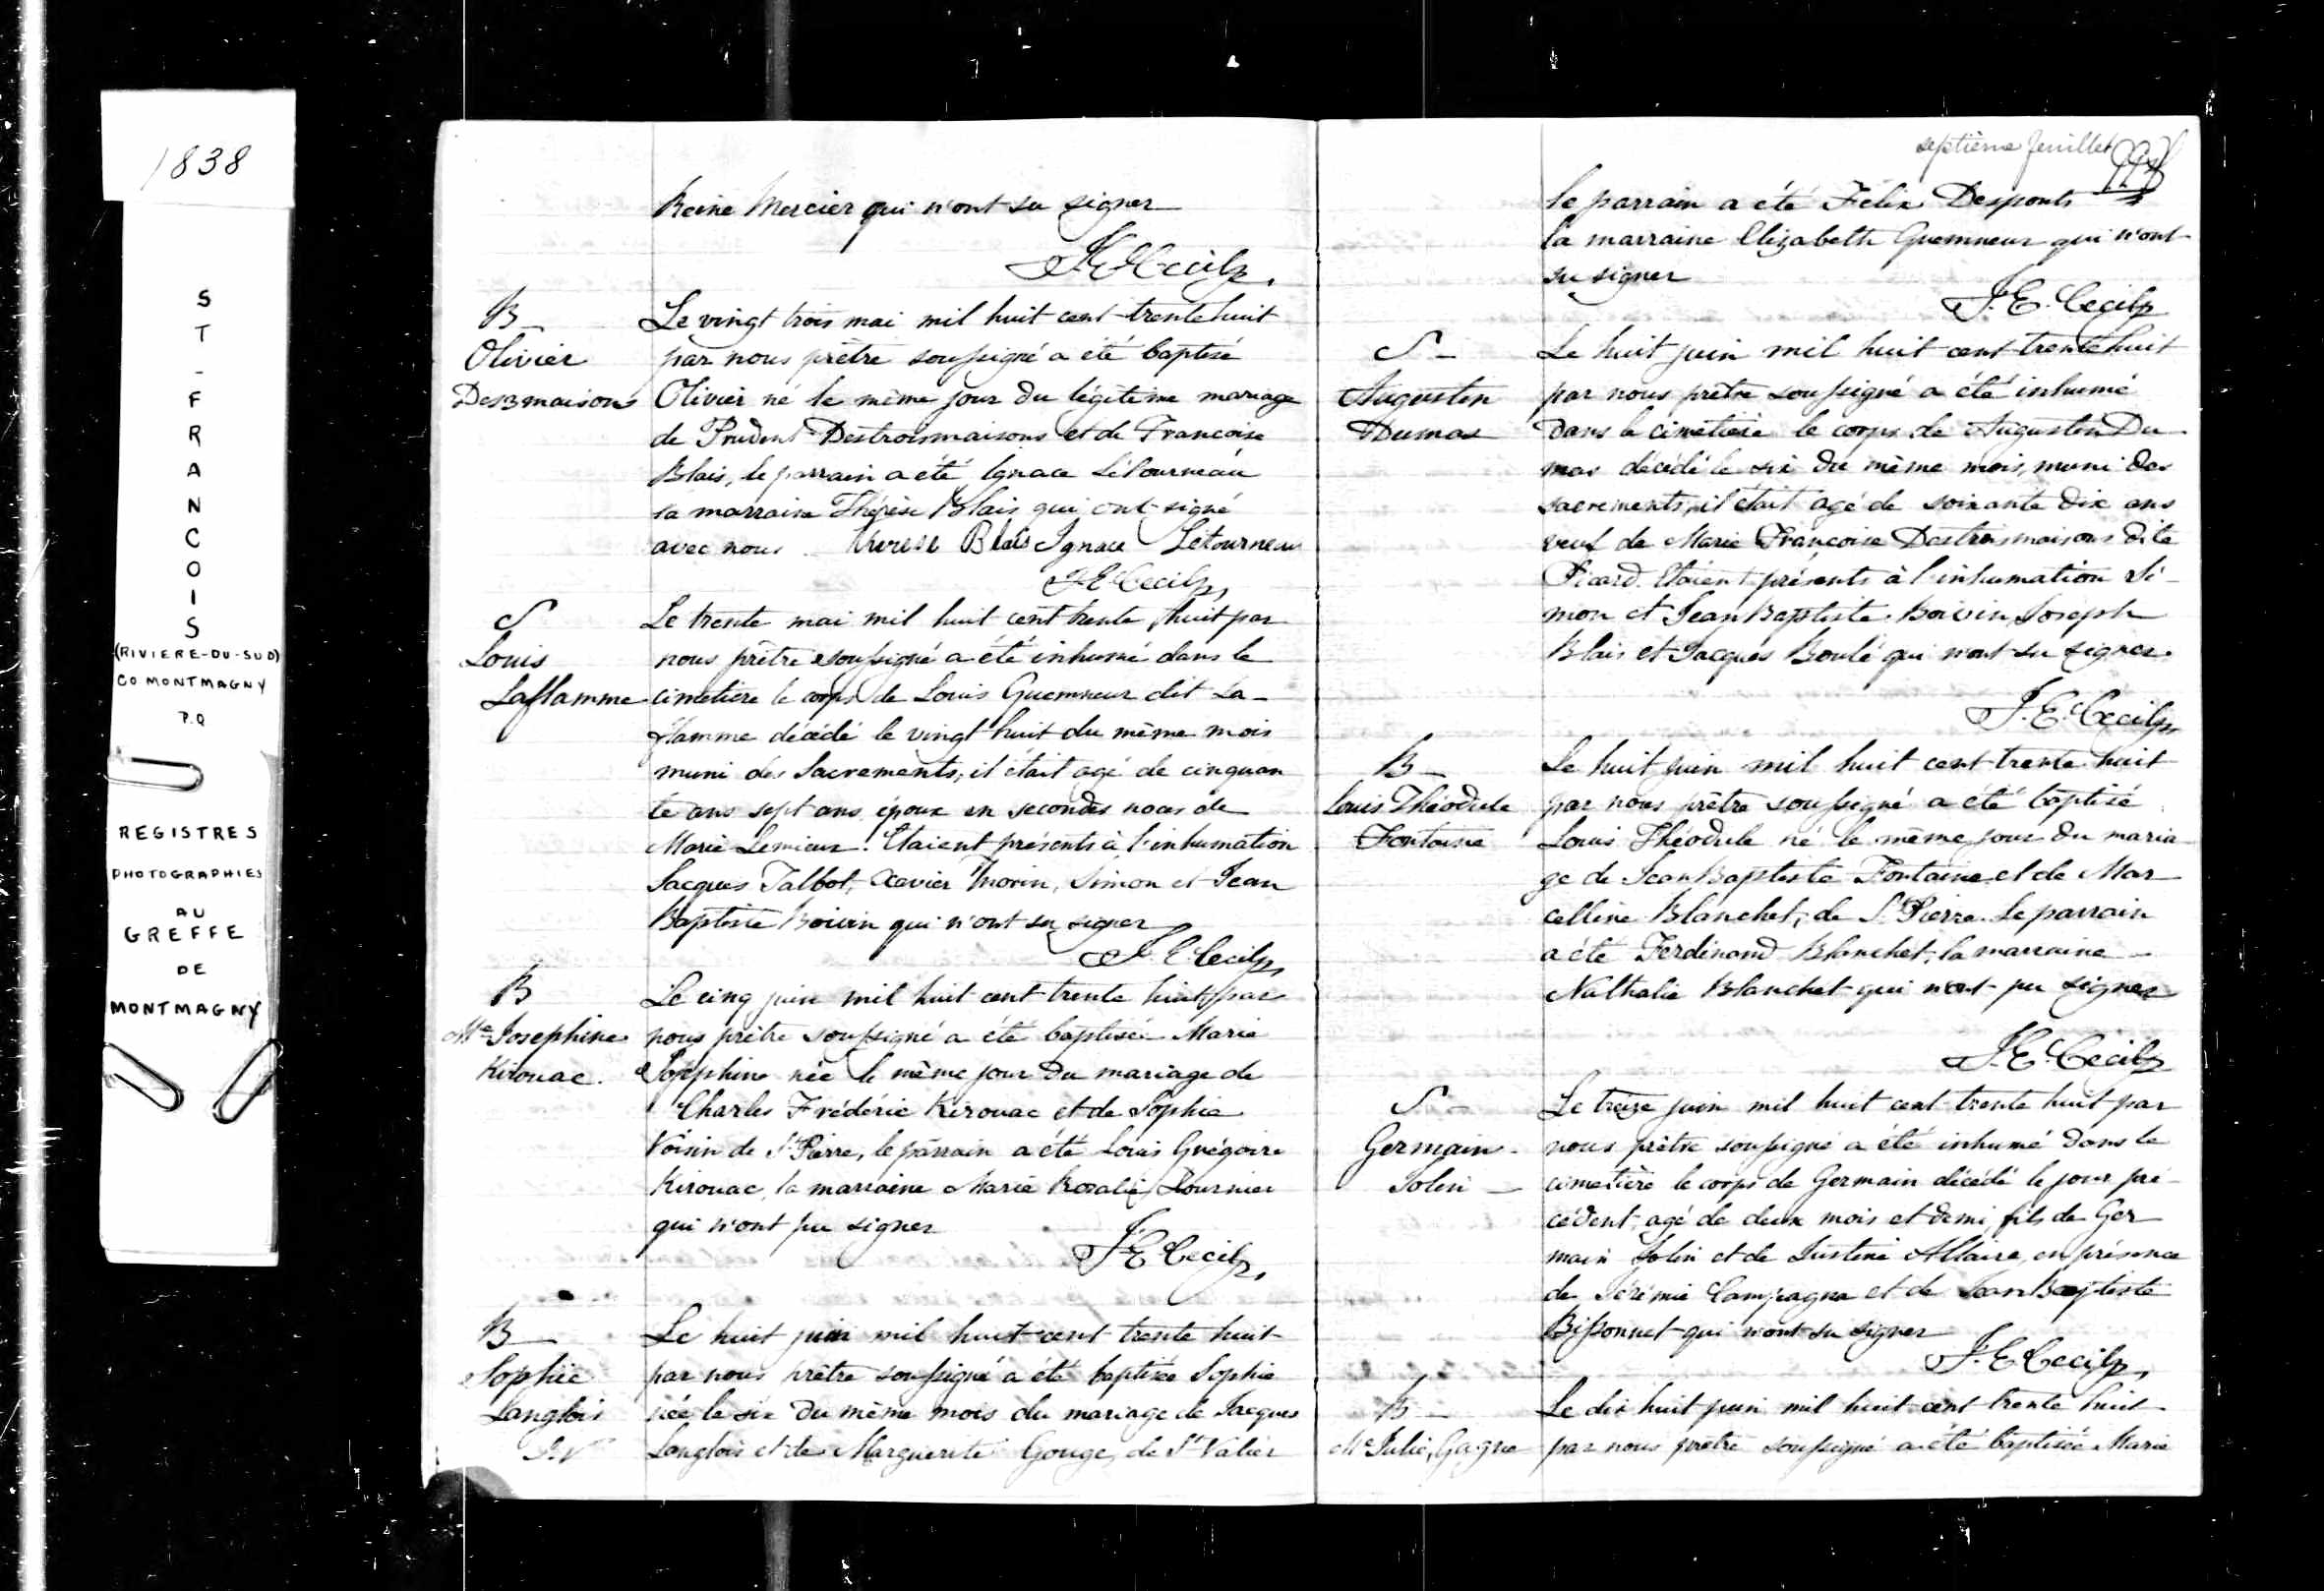 1838
S
T
-
F
R
A
N
C
O
I
S
(RIVIERE-DU-SUD)
CO MONTMAGNY
P.Q
REGISTRES
PHOTOGRAPHIES
AU
GREFFE
DE
MONTMAGNY
Reine Mercier qui n'ont su signer
J. E. Cecil, ptr
B
Olivier
Des3maisons
Le vingt trois mai mil huit cent trente huit
par nous prêtre soussigné a été baptisé
Olivier né le même jour du légitime mariage
de Prudent Destroismaisons et de Francoise
Blais, le parrain a été Ignace Létourneau
la marraine Thérèse Blais qui ont signé
avec nous Therese Blais Ignace Létourneau
J. E. Cecil, ptr
S
Louis
Laflamme
Le trente mai mil huit cent trente huit par
nous prêtre soussigné a été inhumé dans le
cimetière le corps de Louis Guemneur dit La-
flamme décédé le vingt huit du même mois
muni des Sacrements, il était agé de cinquan
te ans sept ans époux en secondes noces de
Marie Lemieux. Etaient présents à l'inhumation
Jacques Talbot, Xavier Morin, Simon et Jean
Baptiste Boivin qui n'ont su signer
J. E. Cecil, ptr
B
Me Josephine
Kirouac.
Le cinq juin mil huit cent trente huit par
nous prêtre soussigné a été baptisée Marie
Josephine née le même jour du mariage de
Charles Frédéric Kirouac et de Sophie
Voisin de St Pierre, le parrain a été Louis Grégoire
Kirouac, la marraine Marie Rosalie Fournier
qui n'ont pu signer
J. E. Cecil, ptr
B
Sophie
Langlois
S. V
Le huit juin mil huit cent trente huit
par nous prêtre soussigné a été baptisée Sophie
née le six du même mois du mariage de Jacques
Langlois et de Marguerite Gouge, de St Valier
septième feuillet
le parrain a été Felix Desponts
la marraine Elizabeth Guemneur qui n'ont
su signer
J. E. Cecil, ptr
S -
Augustin
Dumas
Le huit juin mil huit cent trente huit
par nous prêtre soussigné a été inhumé
dans le cimetière le corps de Augustin Du
mas décédé le six du même mois, muni des
sacrements, il était agé de soixante dix ans
veuf de Marie Françoise Destroismaisons dite
Picard. Etaient présents à l'inhumation Si-
mon et Jean Baptiste Boivin, Joseph
Blais et Jacques Boulé qui n'ont su signer.
J. E. Cecil, ptr
B -
Louis Théodule
Fontaine
Le huit juin mil huit cent trente huit
par nous prêtre soussigné a été baptisé
Louis Théodule né le même jour du maria
ge de Jean Baptiste Fontaine et de Mar
celline Blanchet, de St Pierre. Le parrain
a été Ferdinand Blanchet, la marraine
Nathalie Blanchet qui n'ont pu signer
J. E. Cecil, ptr
S -
Germain
Jolin
Le treize juin mil huit cent trente huit par
nous prêtre soussigné a été inhumé dans le
cimetière le corps de Germain décédé le jour pré-
cédent, agé de deux mois et demi, fils de Ger
main Jolin et de Justine Allaire, en présence
de Jérémie Campagna et de Jean Baptiste
Bissonnet qui n'ont su signer
J. E. Cecil, ptr
B -
Me Julie, Gagne
Le dix huit juin mil huit cent trente huit
par nous prêtre soussigné a été baptisée Marie